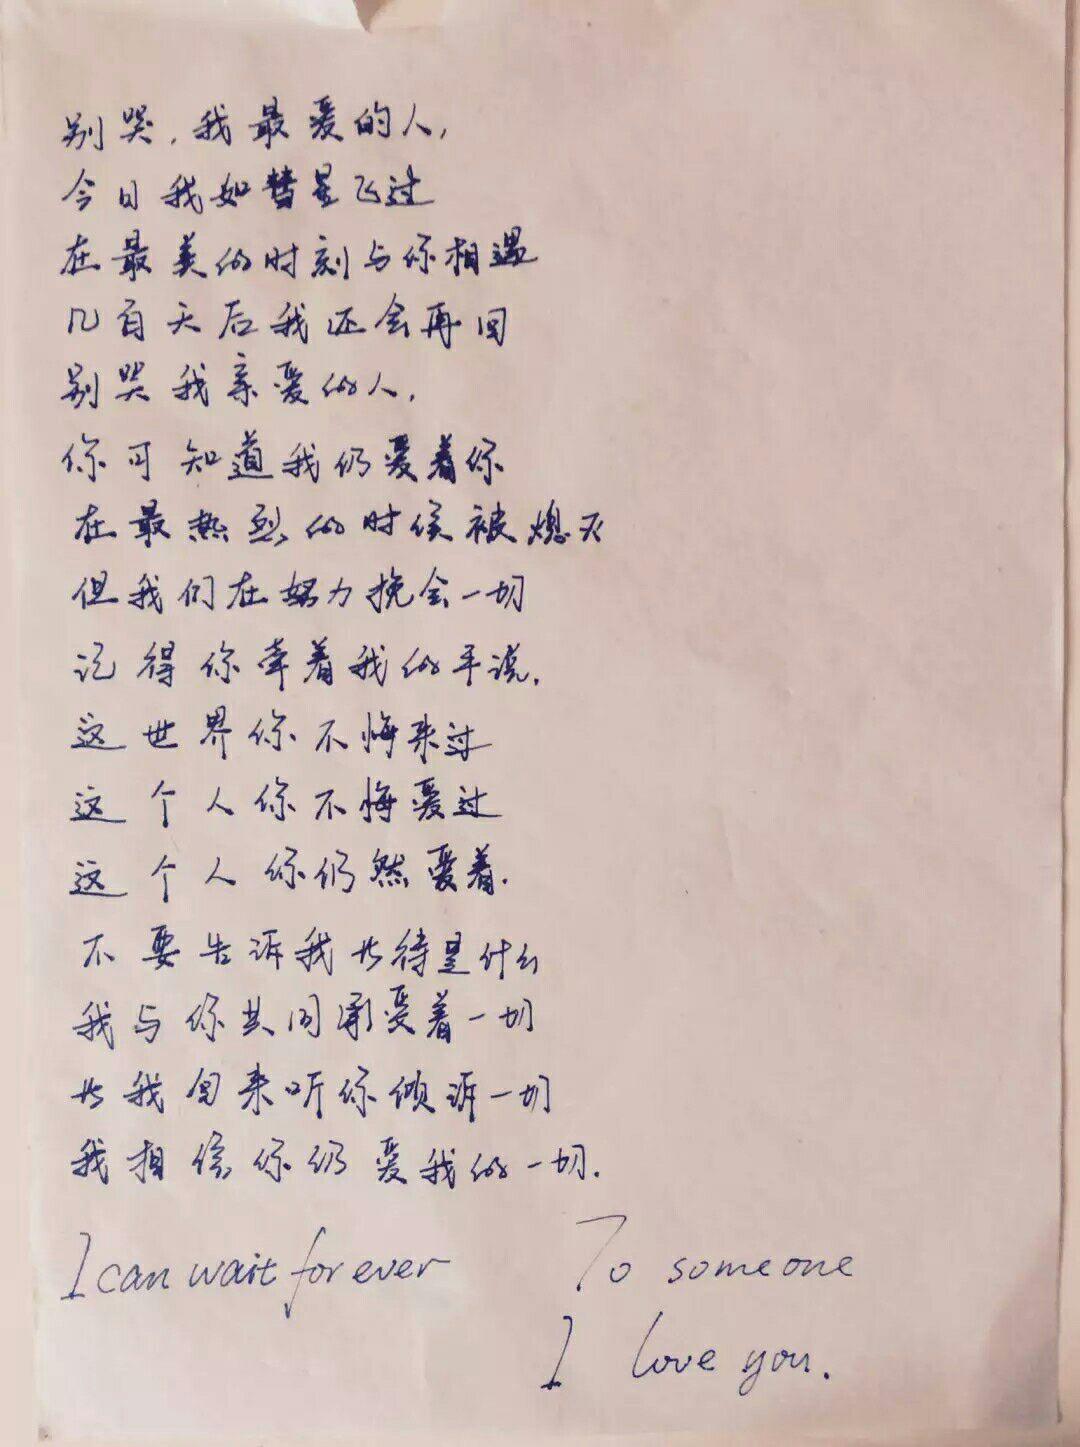 别哭，我最爱的人，
今日我如彗星飞过
在最美的时刻与你相遇
几百天后我还会再回
别哭我亲爱的人，
你可知道我仍爱着你
在最热烈的时候被熄灭
但我们在努力挽会一切
记得你牵着我的手说，
这世界你不悔来过
这个人你不悔爱过
这个人你仍然爱着.
不要告诉我等待是什么
我与你共同承受着一切
等我回来听你倾诉一切
我相信你仍爱我的一切.
I can wait forever To someone
I love you.